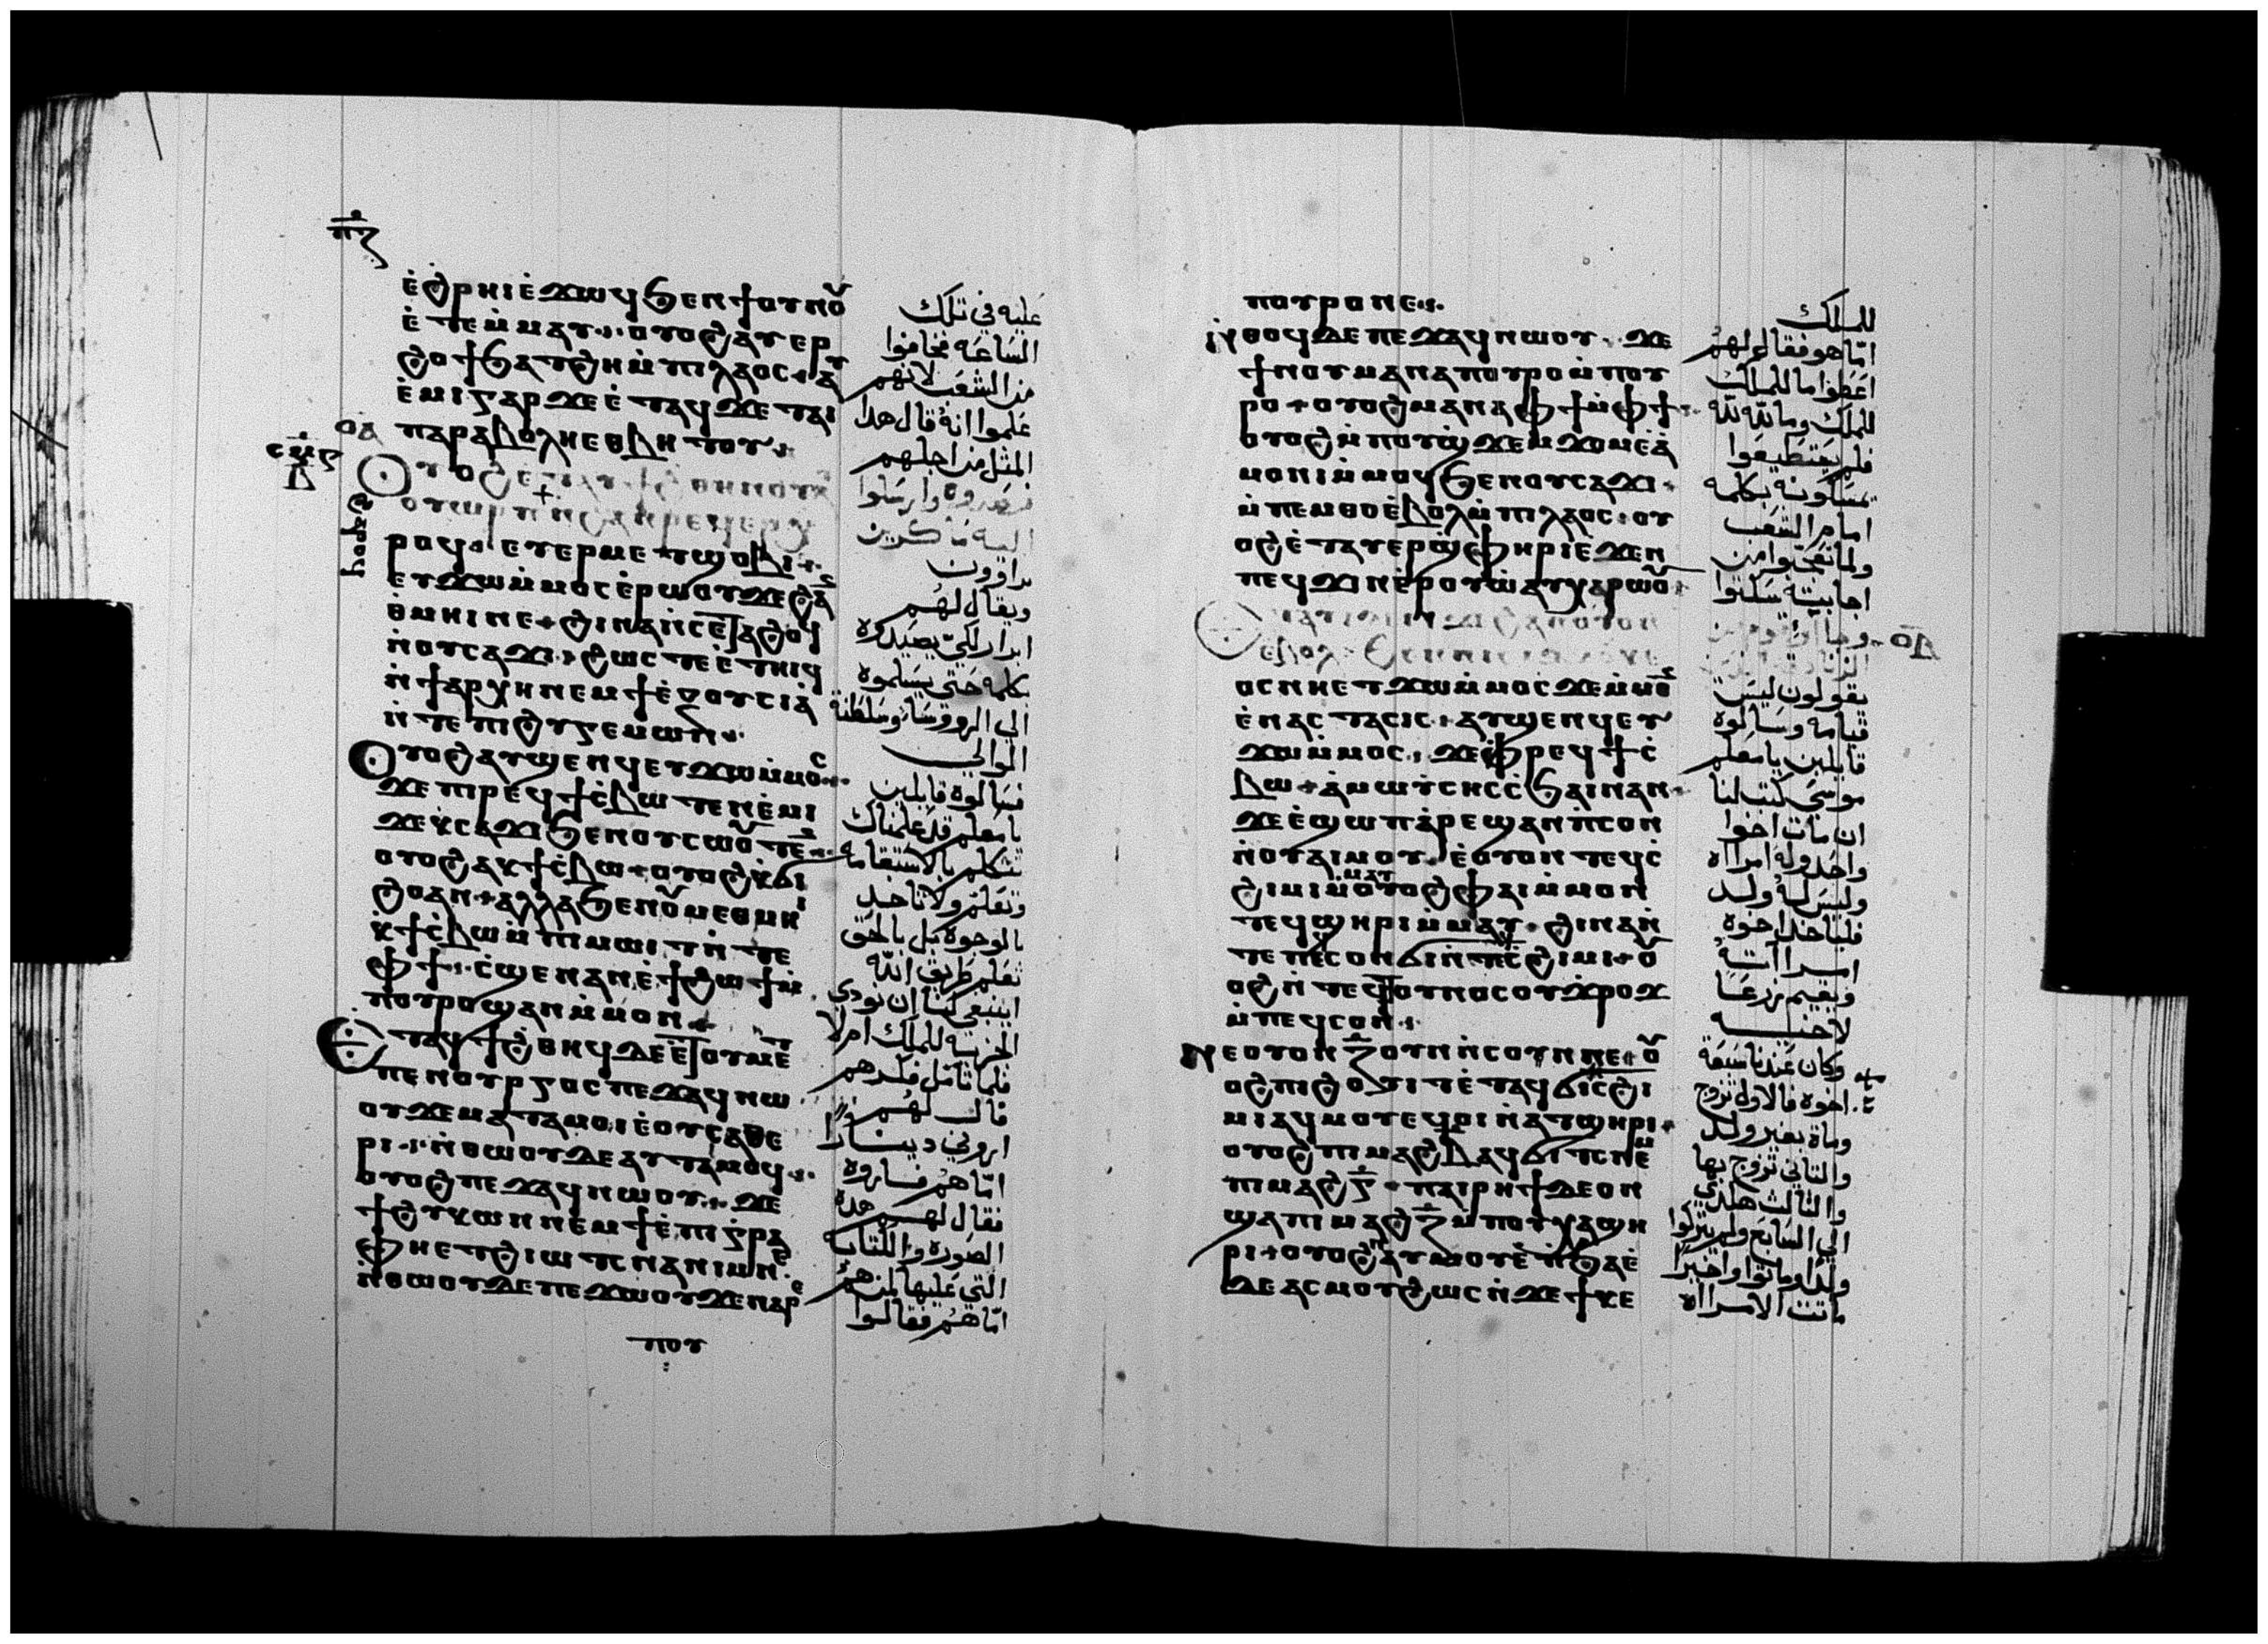 ⲡⲍ
ⲉ̀ϩⲣⲏⲓ ⲉ̀ϫⲱϥ ϧⲉⲛ ϯⲟⲩⲛⲟⲩ
ⲉ̀ⲧⲉⲙ̀ⲙⲁⲩ ⲟⲩⲟϩ ⲁⲩⲉⲣ
ϩⲟϯ ϧⲁⲧϩⲏ ⲙ̀ⲡⲓⲗⲁⲟⲥ ⲁⲩ
ⲉ̀ⲙⲓ ⲅⲁⲣ ϫⲉ ⲉ̀ⲧⲁϥϫⲉ ⲧⲁⲓ
ⲡⲁⲣⲁⲃⲟⲗⲏ ⲉⲑⲃⲏⲧⲟⲩ
ⲟⲩⲟϩ
ⲟⲩⲱⲣⲡ ⲛ̀ϩⲁⲛⲣⲉϥⲉⲣⲭ
ⲣⲟϥ ⲉⲩⲉⲣⲙⲉⲧϣⲟⲃⲓ
ⲉⲩϫⲱ ⲙ̀ⲙⲟⲥ ⲉ̀ⲣⲱⲟⲩ ϫⲉ ϩⲁⲛ
ⲑⲙⲏⲓ ⲛⲉ ϩⲓⲛⲁ ⲛ̀ⲥⲉⲧⲁϩⲟϥ
ⲛ̀ⲟⲩⲥⲁϫⲓ ϩⲱⲥⲧⲉ ⲉ̀ⲧⲏⲓϥ
ⲛ̀ϯⲁⲣⲭⲏ ⲛⲉⲙ ϯⲉ̀ⲝⲟⲩⲥⲓⲁ̀
ⲛ̀ⲧⲉ ⲡⲓϩⲩⲅⲉⲙⲱⲛ
ⲟⲩⲟϩ ⲁⲩϣⲉⲛϥ ⲉⲩϫⲱ ⲙ̀ⲙⲟⲥ
ϫⲉ ⲡⲓⲣⲉϥϯⲥ̀ⲃⲱ ⲧⲉⲛⲉ̀ⲙⲓ
ϫⲉ ⲕ̀ⲥⲁϫⲓ ϧⲉⲛ ⲟⲩⲥⲱⲟⲩⲧⲉⲛ
ⲟⲩⲟϩ ⲁⲕϯⲥ̀ⲃⲱ ⲟⲩⲟϩ ⲕ̀ϭⲓ
ϩⲟ ⲁⲛ ⲁⲗⲗⲁ ϧⲉⲛ ⲟⲩⲙⲉⲑⲙⲏⲓ
ⲕ̀ϯⲥ̀ⲃⲱ ⲙ̀ⲡⲓⲙⲱⲓⲧ ⲛ̀ⲧⲉ
ⲫϯ ⲥ̀ϣⲉ ⲛⲁⲛ ⲉ̀ϯϩⲱϯ ⲙ̀
ⲡⲟⲩⲣⲟ ϣⲁⲛ ⲙ̀ⲙⲟⲛ
ⲉⲧⲁϥϯϩⲑⲏϥ ⲇⲉ ⲉ̀ⲧⲟⲩⲙⲉⲧ
ⲡⲉⲛⲟⲩⲣⲅⲟⲥ ⲡⲉϫⲁϥ ⲛⲱ
ⲟⲩ ϫⲉ ⲙⲁⲧⲁⲙⲟⲓ ⲉ̀ⲟⲩⲥⲁⲑⲉ
ⲣⲓ ⲛ̀ⲑⲱⲟⲩ ⲇⲉ ⲁⲩⲧⲁⲙⲟϥ
ⲟⲩⲟϩ ⲡⲉϫⲁϥ ⲛⲱⲟⲩ ϫⲉ
ϯϩⲩⲕⲱⲛ ⲛⲉⲙ ϯⲉ̀ⲡⲓⲅⲣⲁ
ⲫⲏ ⲉⲧϩⲓⲱⲧⲥ ⲛⲁ ⲛⲓⲙ ⲛⲉ
ⲛ̀ⲑⲱⲟⲩ ⲇⲉ ⲡⲉϫⲱⲟⲩ ϫⲉ ⲛⲁⲣⲉ
ⲡⲟⲩ
عليه في تلك
الساعه فخافوا
من الشعب لانهم
علموا انه قال هذا
المثل من اجلهم
وارسلوا
اليه ماكرين
ويقال لهم
ابرار لكي يصيدوه
بكلمه حتى يسلموه
الى الرووسا وسلطنة
الوالي
فسالوه قايلين
يا معلم قد علمناك
تتكلم بالاستقامه
وتعلم ولا تاخد
بالوجوه بل بالحق
تعلم طريق الله
اينبغي لنا ان نودي
الجزيه للملك ام لا
فلما تامل مكرهم
قال لهم
اروني دينارًا
امّا هم فاروه
فقال لهم هده
الصوره والكتابه
التي عليها لمن هم
امّا هم فقالوا
ⲡⲟⲩⲣⲟ ⲛⲉ
ⲛ̀ⲑⲟϥ ⲇⲉ ⲡⲉϫⲁϥ ⲛⲱⲟⲩ ϫⲉ
ϯⲛⲟⲩ ⲙⲁ ⲛⲁ ⲡⲟⲩⲣⲟ ⲙ̀ⲡⲟⲩ
ⲣⲟ ⲟⲩⲟϩ ⲙⲁ ⲛⲁ ⲫϯ ⲙ̀ⲫϯ
ⲟⲩⲟϩ ⲙ̀ⲡⲟⲩϣ̀ϫⲉⲙϫⲟⲙ ⲉ̀ⲁ̀
ⲙⲟⲛⲓ ⲙ̀ⲙⲟϥ ϧⲉⲛ ⲟⲩⲥⲁϫⲓ
ⲙ̀ⲡⲉⲙⲑⲟ ⲉ̀ⲃⲟⲗ ⲙ̀ⲡⲓⲗⲁⲟⲥ ⲟⲩ
ⲟϩ ⲉ̀ⲧⲁⲩⲉⲣϣ̀ⲫⲏⲣⲓ ⲉ̀ϫⲉⲛ
ⲡⲉϥϫⲓⲛⲉ̀ⲣⲟⲩⲱ̀ ⲁⲩⲭⲁⲣⲱⲟⲩ
ⲉ̀ⲃⲟⲗ
ⲟⲥ ⲛⲏ ⲉⲧϫⲱ ⲙ̀ⲙⲟⲥ ϫⲉ ⲙ̀ⲙⲟⲛ
ⲉ̀ⲛⲁⲥⲧⲁⲥⲓⲥ ⲁⲩϣⲉⲛϥ ⲉⲩ
ϫⲱ ⲙ̀ⲙⲟⲥ ϫⲉ ⲫⲣⲉϥϯⲥ̀
ⲃⲱ ⲁ̀ ⲙⲱⲩ̀ⲥⲏⲥ ⲥ̀ϧⲁⲓ ⲛⲁⲛ
ϫⲉ ⲉ̀ϣⲱⲡ ⲁ̀ⲣⲉϣⲁⲛ ⲡ̀ⲥⲟⲛ
ⲛ̀ⲟⲩⲁⲓ ⲙⲟⲩ ⲉ̀ⲟⲩⲟⲛ ⲧⲉϥⲥ̀
ϩⲓⲙⲓ ⲙ̀ⲙⲁⲩ ⲟⲩⲟϩ ⲫⲁⲓ ⲙ̀ⲙⲟⲛ
ⲧⲉϥϣⲏⲣⲓ ⲙ̀ⲙⲁⲩ ϩⲓⲛⲁ ⲛ̀
ⲧⲉ ⲡⲉϥⲥⲟⲛ ϭⲓ ⲛ̀ⲧⲉϥⲥ̀ϩⲓⲙⲓ ⲟⲩ
ⲟϩ ⲛ̀ⲧⲉϥⲧⲟⲩⲛⲟⲥ ⲟⲩϫⲣⲟϫ
ⲙ̀ⲡⲉϥⲥⲟⲛ
ⲛⲉ ⲟⲩⲟⲛ ⲍ̅ ⲟⲩⲛ ⲛ̀ⲥⲟⲩⲛ ⲡⲉ ⲟⲩ
ⲟϩ ⲡⲓϩⲟⲩⲓⲧ ⲉ̀ⲧⲁϥϭⲓⲥ̀ϩⲓ
ⲙⲓ ⲁϥⲙⲟⲩ ⲉϥⲟⲓ ⲛ̀ⲁⲧϣⲏⲣⲓ
ⲟⲩⲟϩ ⲡⲓⲙⲁϩⲃ̅ ⲁϥϭⲓⲧⲥ ⲛⲉⲙ
ⲡⲓⲙⲁϩⲅ̅ ⲡⲁⲓⲣⲏϯ ⲇⲉ ⲟⲛ
ϣⲁ ⲡⲓⲙⲁϩⲍ̅ ⲙ̀ⲡⲟⲩⲭⲁϣⲏ
ⲣⲓ ⲟⲩⲟϩ ⲁⲩⲙⲟⲩ ⲉ̀ⲡϧⲁⲉ̀
ⲇⲉ ⲁⲥⲙⲟⲩ ϩⲱⲥ ⲛ̀ϫⲉ ϯⲕⲉ
للملك
امّا هو فقال لهم
اعطوا ما للملك
للملك وما لله لله
فلم يستطيعوا
يمسكونه بكلمه
امام الشعب
ولما تعجبوا من
اجابيته سكتوا
يقولون ليس
قيامه وسالوه
قايلين يا معلم
موسى كتب لنا
ان مات اخوا
واحد وله امراه
وليس له ولد
فلياخد اخوه
امراته
ويقيم زرعا
لاخيه
وكان عندنا سبعة
اخوه فالاول تزوج
ومات بغير ولد
والتاني تزوج بها
والثالث هكدي
الى السابع ولم يتركوا
ولدا وماتوا واخيرًا
ماتت الامراه